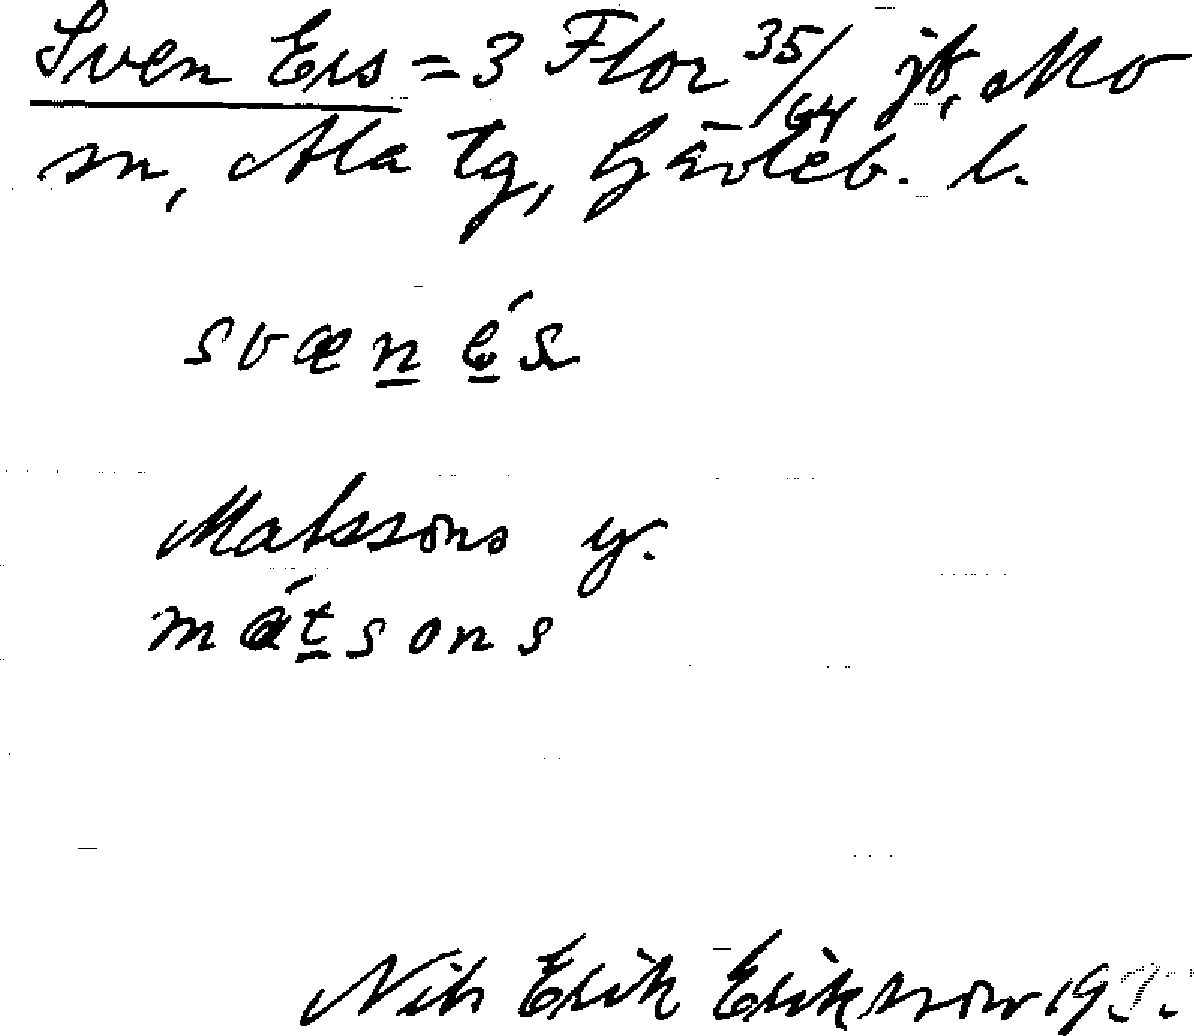 Sven Ers = 3 Flor 35/64 jb, Mo
sn, Ala tg, Gävleb. l.
svæn és
Matssons y.
mátsons
Nils Erik Eriksson 19